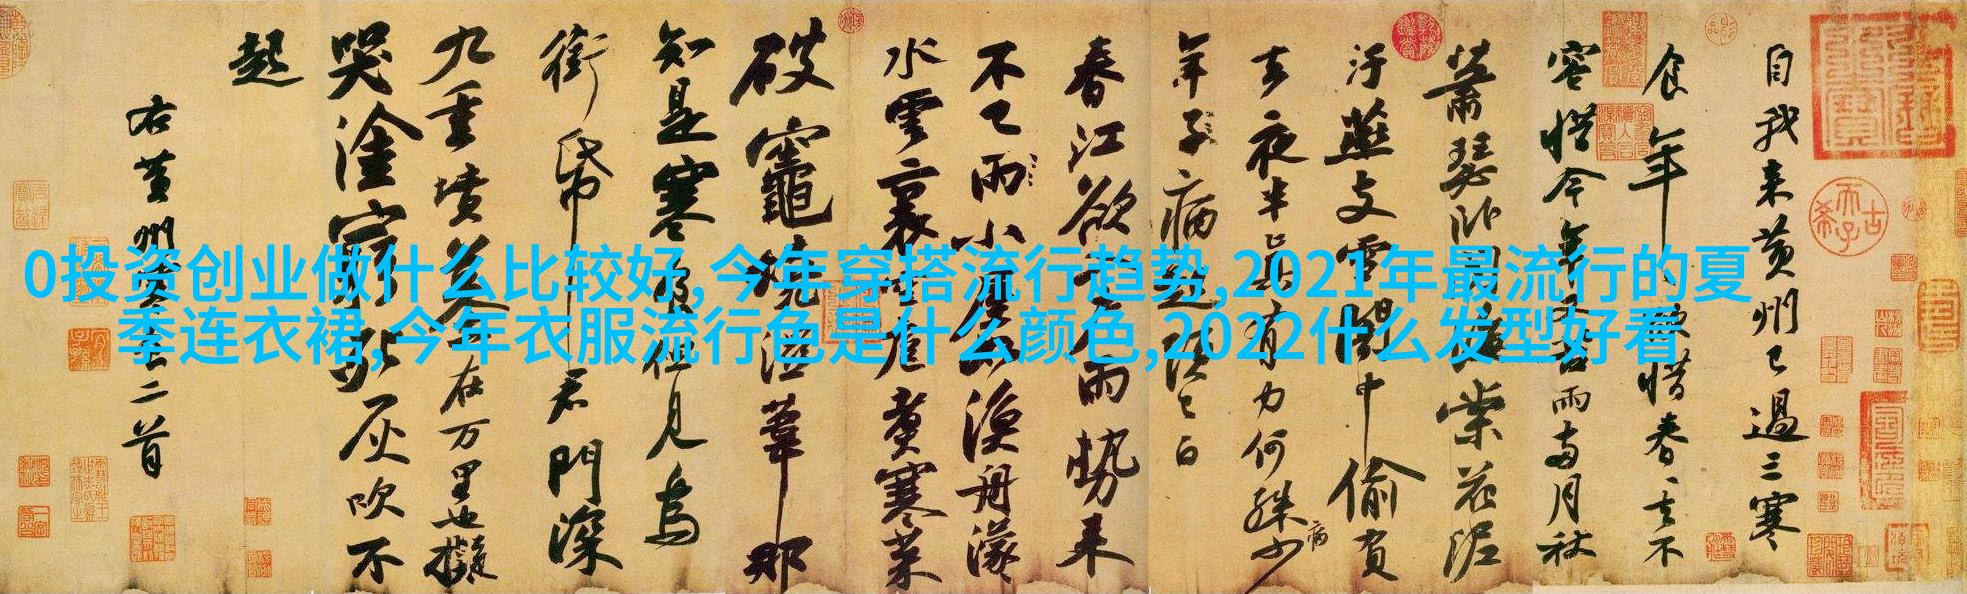 0投资创业做什么比较好,今年穿搭流行趋势,2021年最流行的夏
季连衣裙,今年衣服流行色是什么颜色,2022什么发型好看
自我来黄州已過三寒
食年欲惜春去不
容惜今年又苦雨兩月秋
蕭瑟卧聞海棠花泥
汙燕支雪闇中偷負
去夜半真有力何殊少
年子病起頭已白
春江欲入户雨勢来
不已雨小屋如漁舟濛
水雲裏空庖煮寒菜
破竈燒溼葦那
知是寒食但見烏
銜帋君門深
九重墳墓在万里也擬
哭塗窮死灰吹不
起
右黄州寒食二首